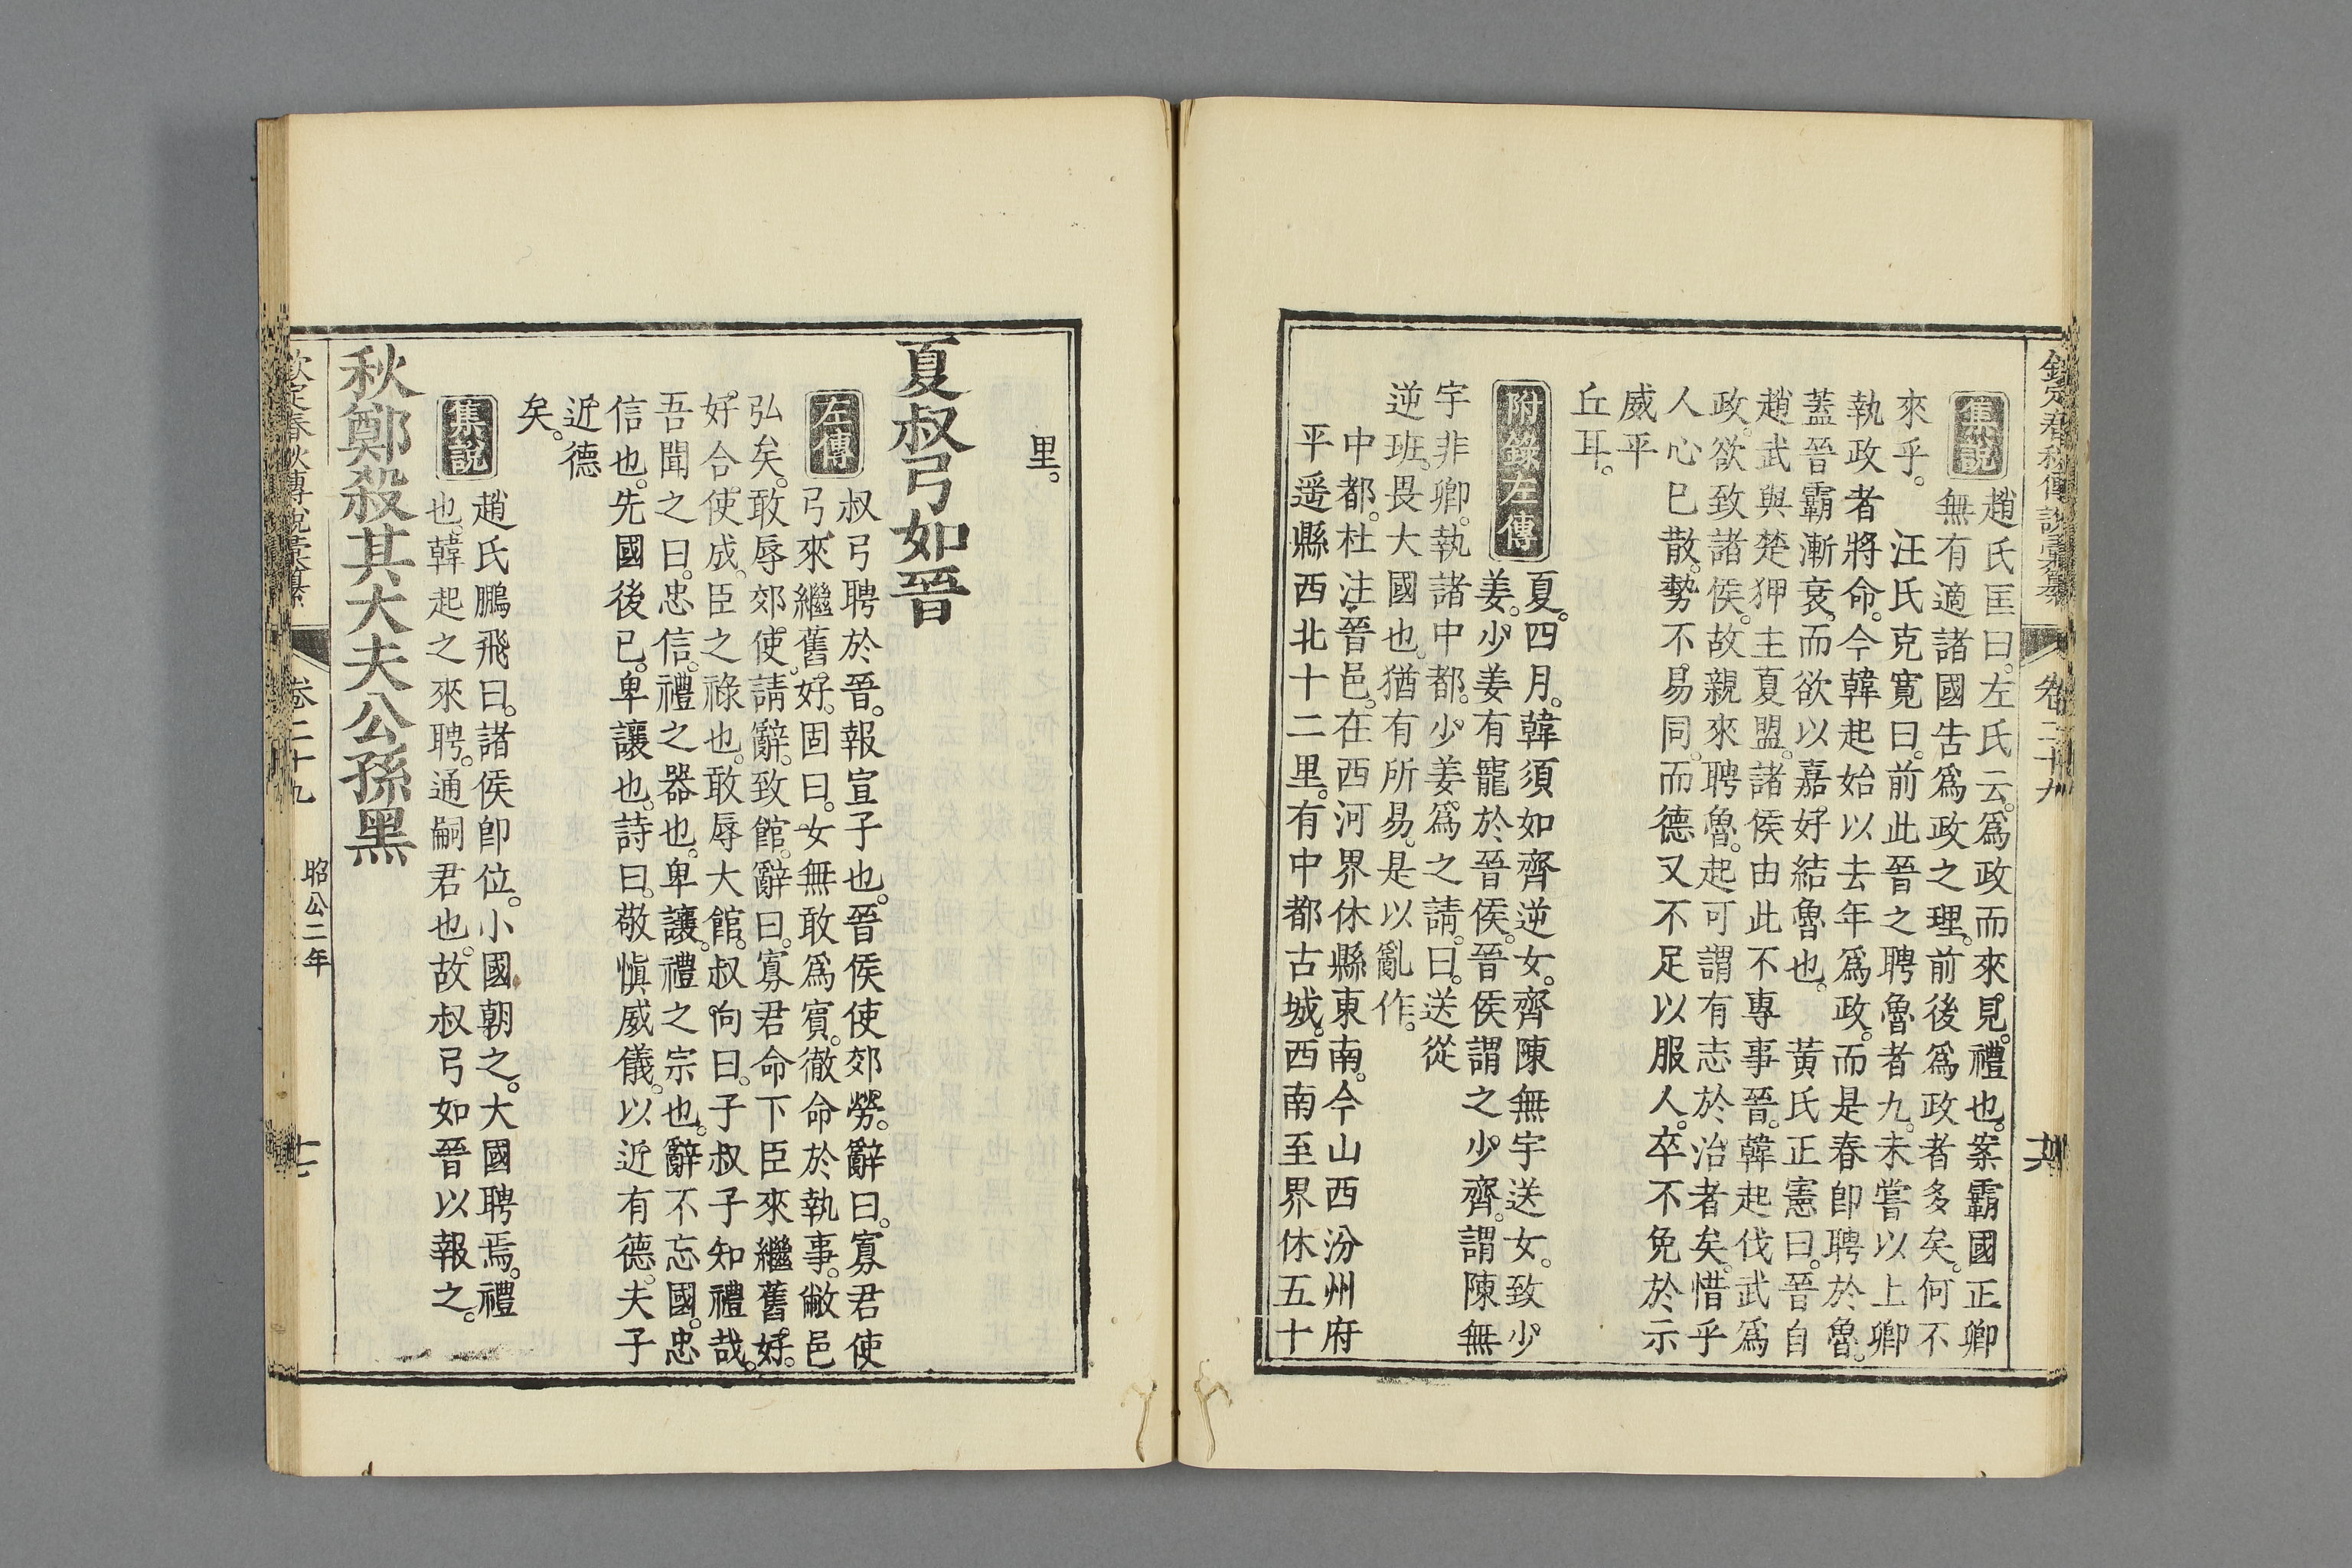 欽定春秋傳說彙纂 卷二十九 十六
集說 趙氏匡曰。左氏云。爲政而來見。禮也。案霸國正卿
無有適諸國告爲政之理。前後爲政者多矣。何不
來乎。 汪氏克寬曰。前此晉之聘魯者九。未嘗以上卿
執政者將命。今韓起始以去年爲政。而是春卽聘於魯。
蓋晉霸漸衰。而欲以嘉好結魯也。 黃氏正憲曰。晉自
趙武與楚狎主夏盟。諸侯由此不專事晉。韓起伐武爲
政。欲致諸侯。故親來聘魯。起可謂有志於治者矣。惜乎
人心已散。勢不易同。而德又不足以服人。卒不免於示
威平
丘耳。
附錄左傳 夏。四月。韓須如齊逆女。齊陳無宇送女。致少
姜。少姜有寵於晉侯。晉侯謂之少齊。謂陳無
宇非卿。執諸中都。少姜爲之請。曰。送從
逆班。畏大國也。猶有所易。是以亂作。
中都。杜注。晉邑。在西河界休縣東南。今山西汾州府
平遥縣西北十二里。有中都古城。西南至界休五十
里。
夏叔弓如晉
左傳 叔弓聘於晉。報宣子也。晉侯使郊勞。辭曰。寡君使
弓來繼舊好。固曰。女無敢爲賓。徹命於執事。敝邑
弘矣。敢辱郊使。請辭。致館。辭曰。寡君命下臣來繼舊好。
好合使成。臣之祿也。敢辱大館。叔向曰。子叔子知禮哉。
吾聞之曰。忠信。禮之器也。卑讓。禮之宗也。辭不忘國。忠
信也。先國後已。卑讓也。詩曰。敬愼威儀。以近有德。夫子
近德
矣。
集說 趙氏鵬飛曰。諸侯卽位。小國朝之。大國聘焉。禮
也。韓起之來聘。通嗣君也。故叔弓如晉以報之。
秋鄭殺其大夫公孫黑
欽定春秋傳說彙纂 卷二十九 昭公二年 十七